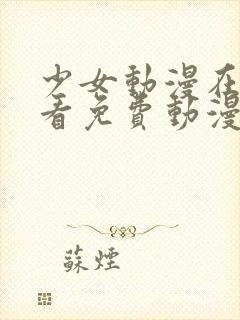 少女動漫在
看免費動漫
蘇煙